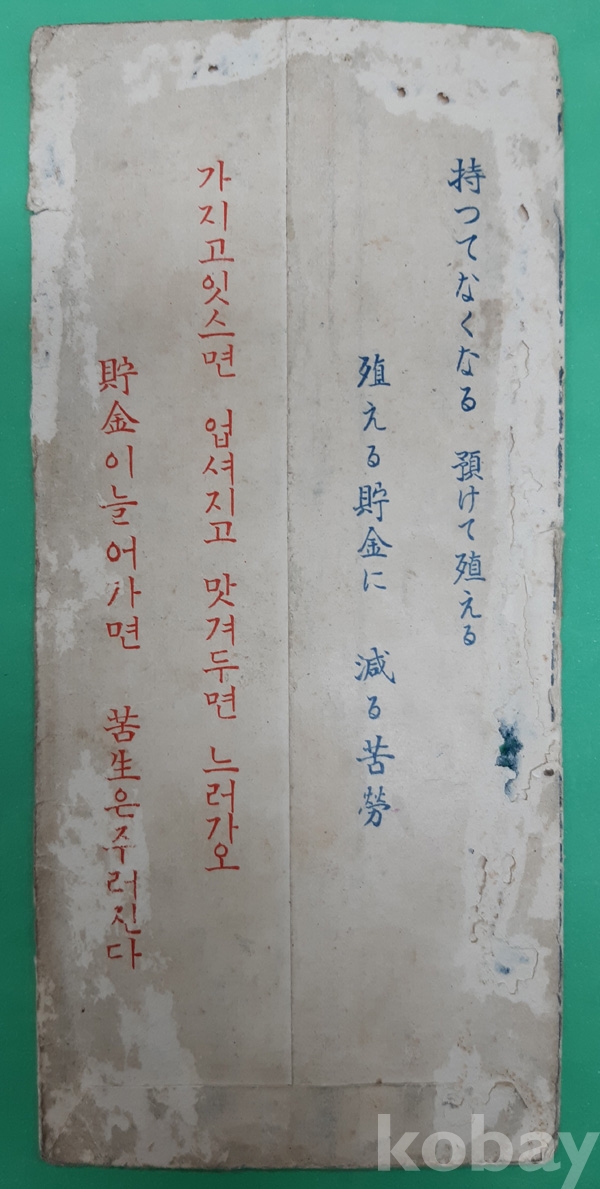 持つてなくなる 預けて殖える
殖える貯金に 減る苦労
가지고잇스면 업셔지고 맛겨두면 느러가오
貯金이늘어가면 苦生은주러진다
kobay